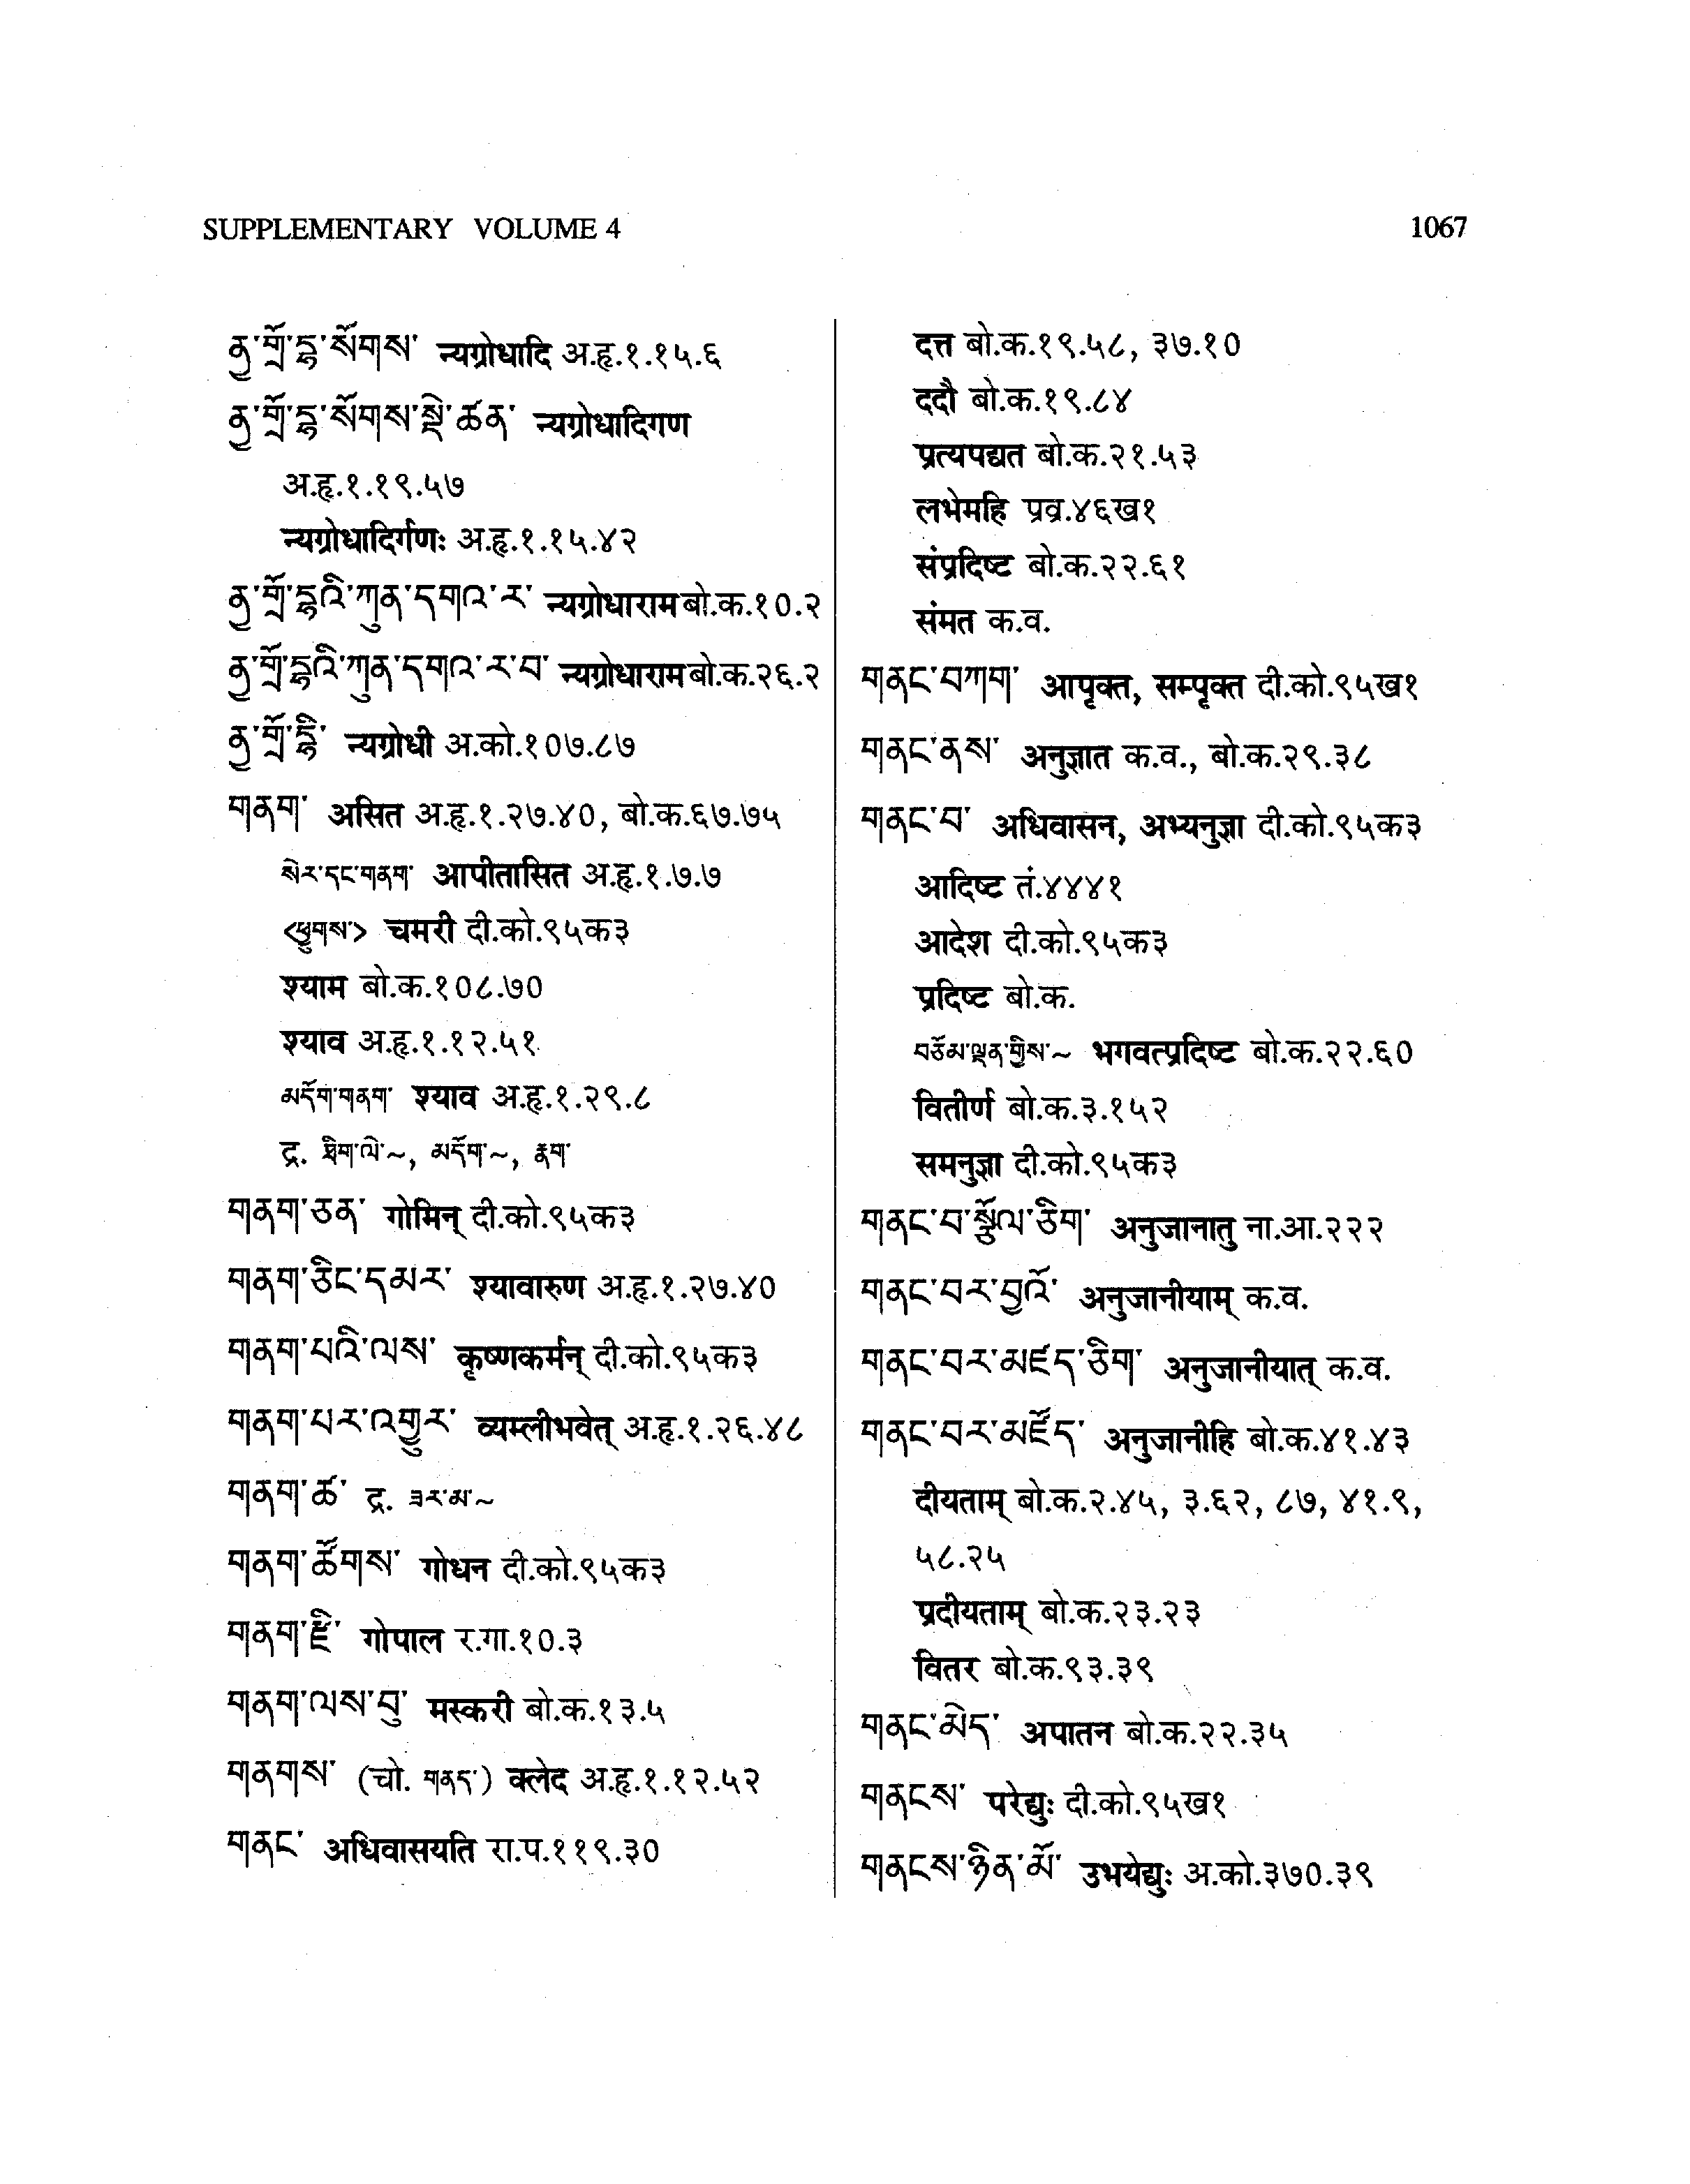 SUPPLEMENTARY VOLUME 4
1067
ནྱ་གྲོ་དྷ་སོགས་ न्यग्रोधादि अ.हृ.१.१५.६
ནྱ་གྲོ་དྷ་སོགས་སྡེ་ཚན་ न्यग्रोधादिगण
अ.हृ.१.१९.५७
न्यग्रोधादिर्गणः अ.हृ.१.१५.४२
ནྱ་གྲོ་དྷའི་ཀུན་དགའ་ར་ न्यग्रोधाराम बो.क.१०.२
ནྱ་གྲོ་དྷའི་ཀུན་དགའ་ར་བ་ न्यग्रोधाराम बो.क.२६.२
ནྱ་གྲོ་དྷི་ न्यग्रोधी अ.को.१०७.८७
གནག་ असित अ.हृ.१.२७.४०, बो.क.६७.७५
སེར་དང་གནག་ आपीतासित अ.हृ.१.७.७
<ཕྱུགས་> चमरी दी.को.९५क३
श्याम बो.क.१०८.७०
श्याव अ.हृ.१.१२.५१
མདོག་གནག་ श्याव अ.हृ.१.२९.८
द्र. ཐིག་ལེ་~, མདོག་~, རྣག་
གནག་ཅན་ गोमिन् दी.को.९५क३
གནག་ཅིང་དམར་ श्यावारुण अ.हृ.१.२७.४०
གནག་པའི་ལས་ कृष्णकर्मन् दी.को.९५क३
གནག་པར་འགྱུར་ व्यम्लीभवेत् अ.हृ.१.२६.४८
གནག་ཚ་ द्र. ཟར་མ་~
གནག་ཚོགས་ गोधन दी.को.९५क३
གནག་རྫི་ गोपाल र.गा.१०.३
གནག་ལས་བུ་ मस्करी बो.क.१३.५
གནགས་ (चो. གནད་) क्लेद अ.हृ.१.१२.५२
གནང་ अधिवासयति रा.प.११९.३०
दत्त बो.क.१९.५८, ३७.१०
ददौ बो.क.१९.८४
प्रत्यपद्यत बो.क.२१.५३
लभेमहि प्रव्र.४६ख१
संप्रदिष्ट बो.क.२२.६१
संमत क.व.
གནང་བཀག་ आपृक्त, सम्पृक्त दी.को.९५ख१
གནང་ནས་ अनुज्ञात क.व., बो.क.२९.३८
གནང་བ་ अधिवासन, अभ्यनुज्ञा दी.को.९५क३
आदिष्ट तं.४४४१
आदेश दी.को.९५क३
प्रदिष्ट बो.क.
བཅོམ་ལྡན་གྱིས་~ भगवत्प्रदिष्ट बो.क.२२.६०
वितीर्ण बो.क.३.१५२
समनुज्ञा दी.को.९५क३
གནང་བ་སྩོལ་ཅིག་ अनुजानातु ना.आ.२२२
གནང་བར་བྱའོ་ अनुजानीयाम् क.व.
གནང་བར་མཛད་ཅིག་ अनुजानीयात् क.व.
གནང་བར་མཛོད་ अनुजानीहि बो.क.४१.४३
दीयताम् बो.क.२.४५, ३.६२, ८७, ४१.९,
५८.२५
प्रदीयताम् बो.क.२३.२३
वितर बो.क.९३.३९
གནང་མེད་ अपातन बो.क.२२.३५
གནངས་ परेद्युः दी.को.९५ख१
གནངས་ཉིན་མོ་ उभयेद्युः अ.को.३७०.३९